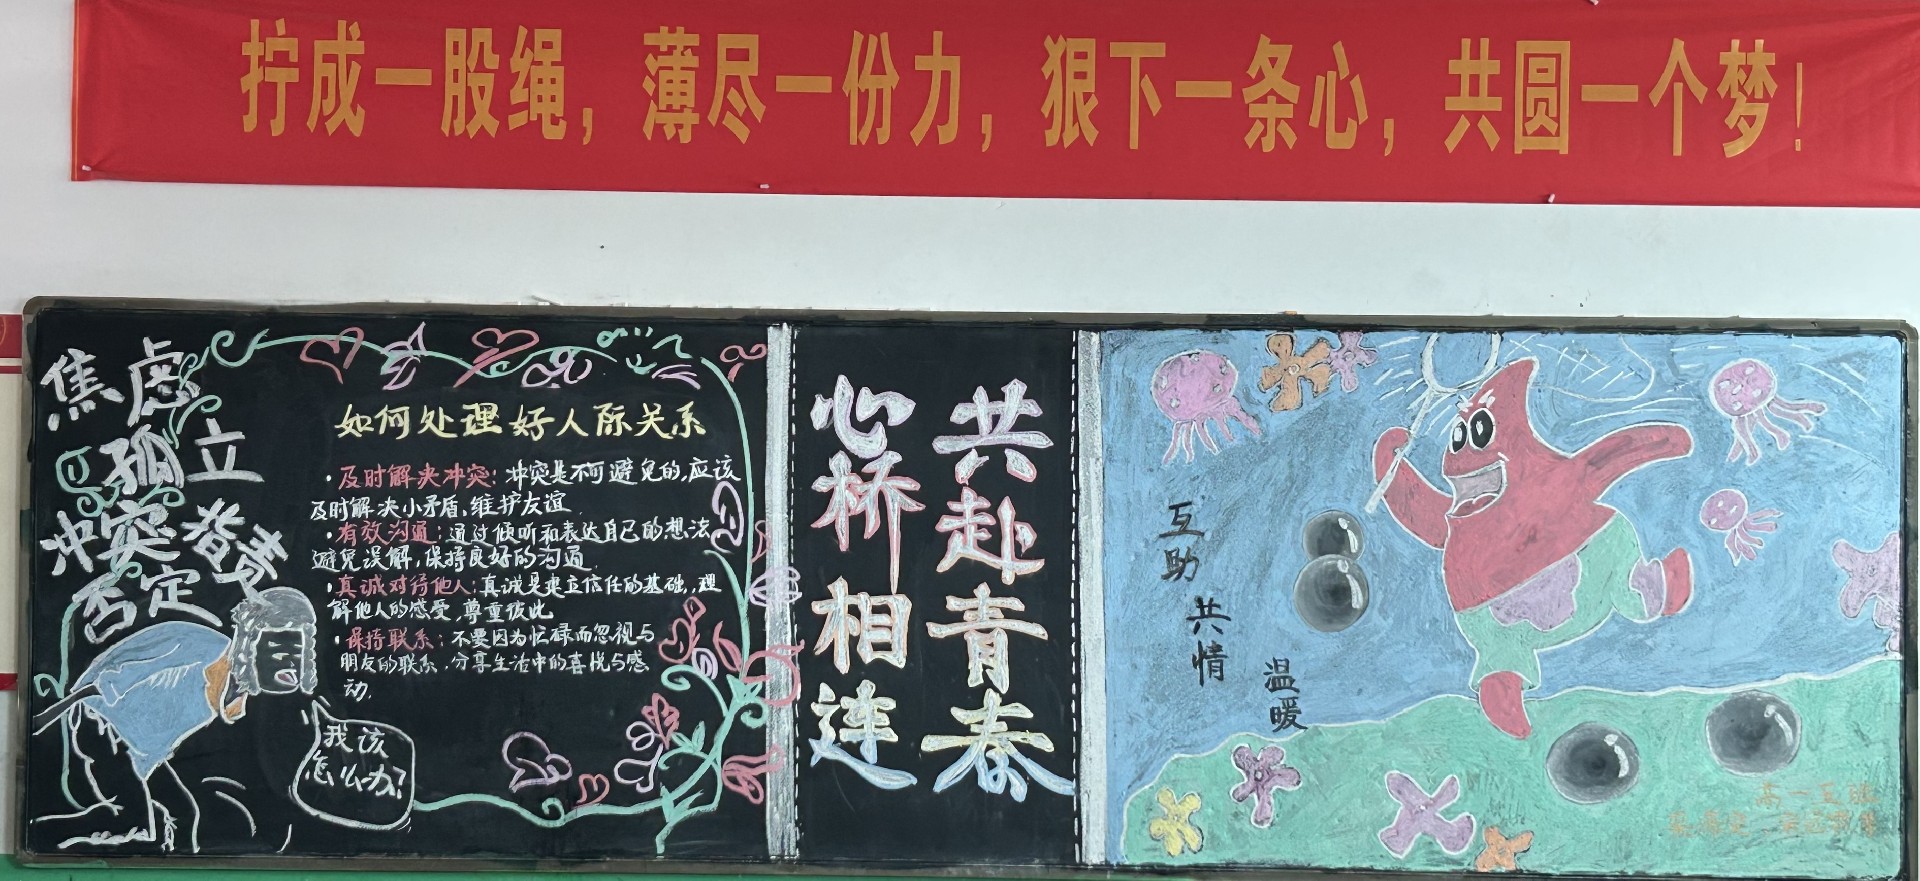 拧成一股绳，薄尽一份力，狠下一条心，共圆一个梦！
焦虑
孤立
冲突 指责
否定
如何处理好人际关系
·及时解决冲突：冲突是不可避免的，应该
及时解决小矛盾，维护友谊．
·有效沟通：通过倾听和表达自己的想法
避免误解，保持良好的沟通．
·真诚对待他人：真诚是建立信任的基础，理
解他人的感受，尊重彼此
·保持联系：不要因为忙碌而忽视与
朋友的联系，分享生活中的喜悦与感
动．
我该
怎么办？
心桥相连
共赴青春
互助
共情
温暖
高一五班